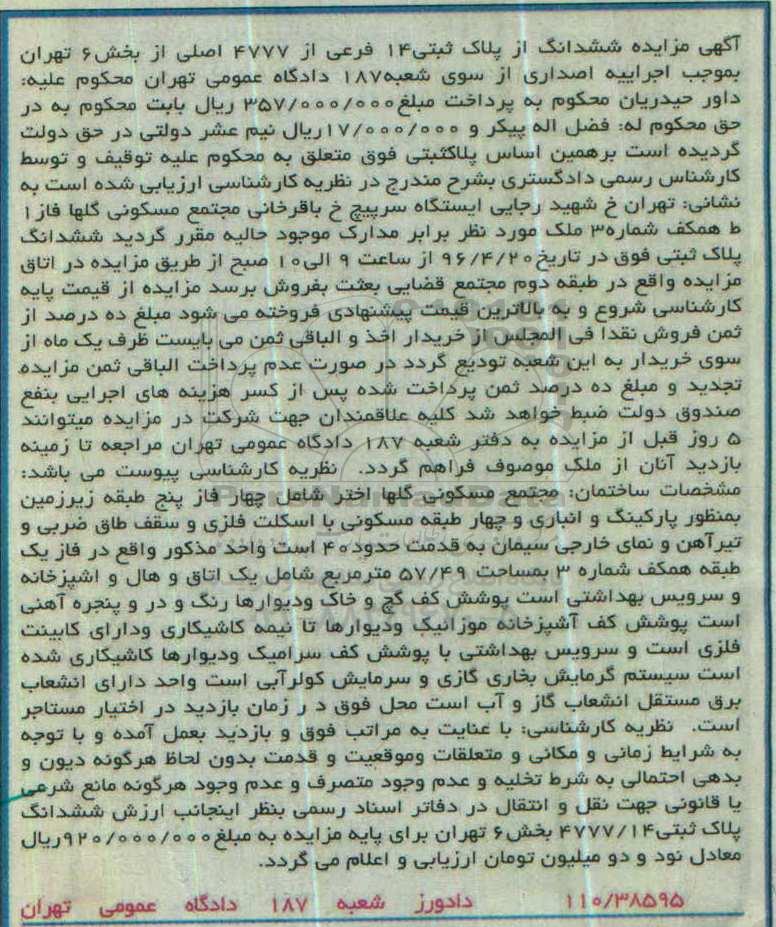 آگهی مزایده ششدانگ از پلاک ثبتی۱۴ فرعی از ۴۷۷۷ اصلی از بخش۶ تهران
بموجب اجراییه اصداری از سوی شعبه۱۸۷ دادگاه عمومی تهران محکوم علیه:
داور حیدریان محکوم به پرداخت مبلغ۳۵۷/۰۰۰/۰۰۰ ریال بابت محکوم به در
حق محکوم له: فضل اله پیکر و ۱۷/۰۰۰/۰۰۰ریال نیم عشر دولتی در حق دولت
گردیده است برهمین اساس پلاکثبتی فوق متعلق به محکوم علیه توقیف و توسط
کارشناس رسمی دادگستری بشرح مندرج در نظریه کارشناسی ارزیابی شده است به
نشانی: تهران خ شهید رجایی ایستگاه سرپیچ خ باقرخانی مجتمع مسکونی گلها فاز۱
ط همکف شماره۳ ملک مورد نظر برابر مدارک موجود حالیه مقرر گردید ششدانگ
پلاک ثبتی فوق در تاریخ۹۶/۴/۲۰ از ساعت ۹ الی۱۰ صبح از طریق مزایده در اتاق
مزایده واقع در طبقه دوم مجتمع قضایی بعثت بفروش برسد مزایده از قیمت پایه
کارشناسی شروع و به بالاترین قیمت پیشنهادی فروخته می شود مبلغ ده درصد از
ثمن فروش نقدا فی المجلس از خریدار اخذ و الباقی ثمن می بایست ظرف یک ماه از
سوی خریدار به این شعبه تودیع گردد در صورت عدم پرداخت الباقی ثمن مزایده
تجدید و مبلغ ده درصد ثمن پرداخت شده پس از کسر هزینه های اجرایی بنفع
صندوق دولت ضبط خواهد شد کلیه علاقمندان جهت شرکت در مزایده میتوانند
۵ روز قبل از مزایده به دفتر شعبه ۱۸۷ دادگاه عمومی تهران مراجعه تا زمینه
بازدید آنان از ملک موصوف فراهم گردد. نظریه کارشناسی پیوست می باشد:
مشخصات ساختمان: مجتمع مسکونی گلها اختر شامل چهار فاز پنج طبقه زیرزمین
بمنظور پارکینگ و انباری و چهار طبقه مسکونی با اسکلت فلزی و سقف طاق ضربی و
تیرآهن و نمای خارجی سیمان به قدمت حدود۴۰ است واحد مذکور واقع در فاز یک
طبقه همکف شماره ۳ بمساحت ۵۷/۴۹ مترمربع شامل یک اتاق و هال و اشپزخانه
و سرویس بهداشتی است پوشش کف گچ و خاک ودیوارها رنگ و در و پنجره آهنی
است پوشش کف آشپزخانه موزانیک ودیوارها تا نیمه کاشیکاری ودارای کابینت
فلزی است و سرویس بهداشتی با پوشش کف سرامیک ودیوارها کاشیکاری شده
است سیستم گرمایش بخاری گازی و سرمایش کولرآبی است واحد دارای انشعاب
برق مستقل انشعاب گاز و آب است محل فوق د ر زمان بازدید در اختیار مستاجر
است. نظریه کارشناسی: با عنایت به مراتب فوق و بازدید بعمل آمده و با توجه
به شرایط زمانی و مکانی و متعلقات وموقعیت و قدمت بدون لحاظ هرگونه دیون و
بدهی احتمالی به شرط تخلیه و عدم وجود متصرف و عدم وجود هرگونه مانع شرعی
یا قانونی جهت نقل و انتقال در دفاتر اسناد رسمی بنظر اینجانب ارزش ششدانگ
پلاک ثبتی۴۷۷۷/۱۴ بخش۶ تهران برای پایه مزایده به مبلغ۹۲۰/۰۰۰/۰۰۰ریال
معادل نود و دو میلیون تومان ارزیابی و اعلام می گردد.
۱۱۰/۳۸۵۹۵ دادورز شعبه ۱۸۷ دادگاه عمومی تهران